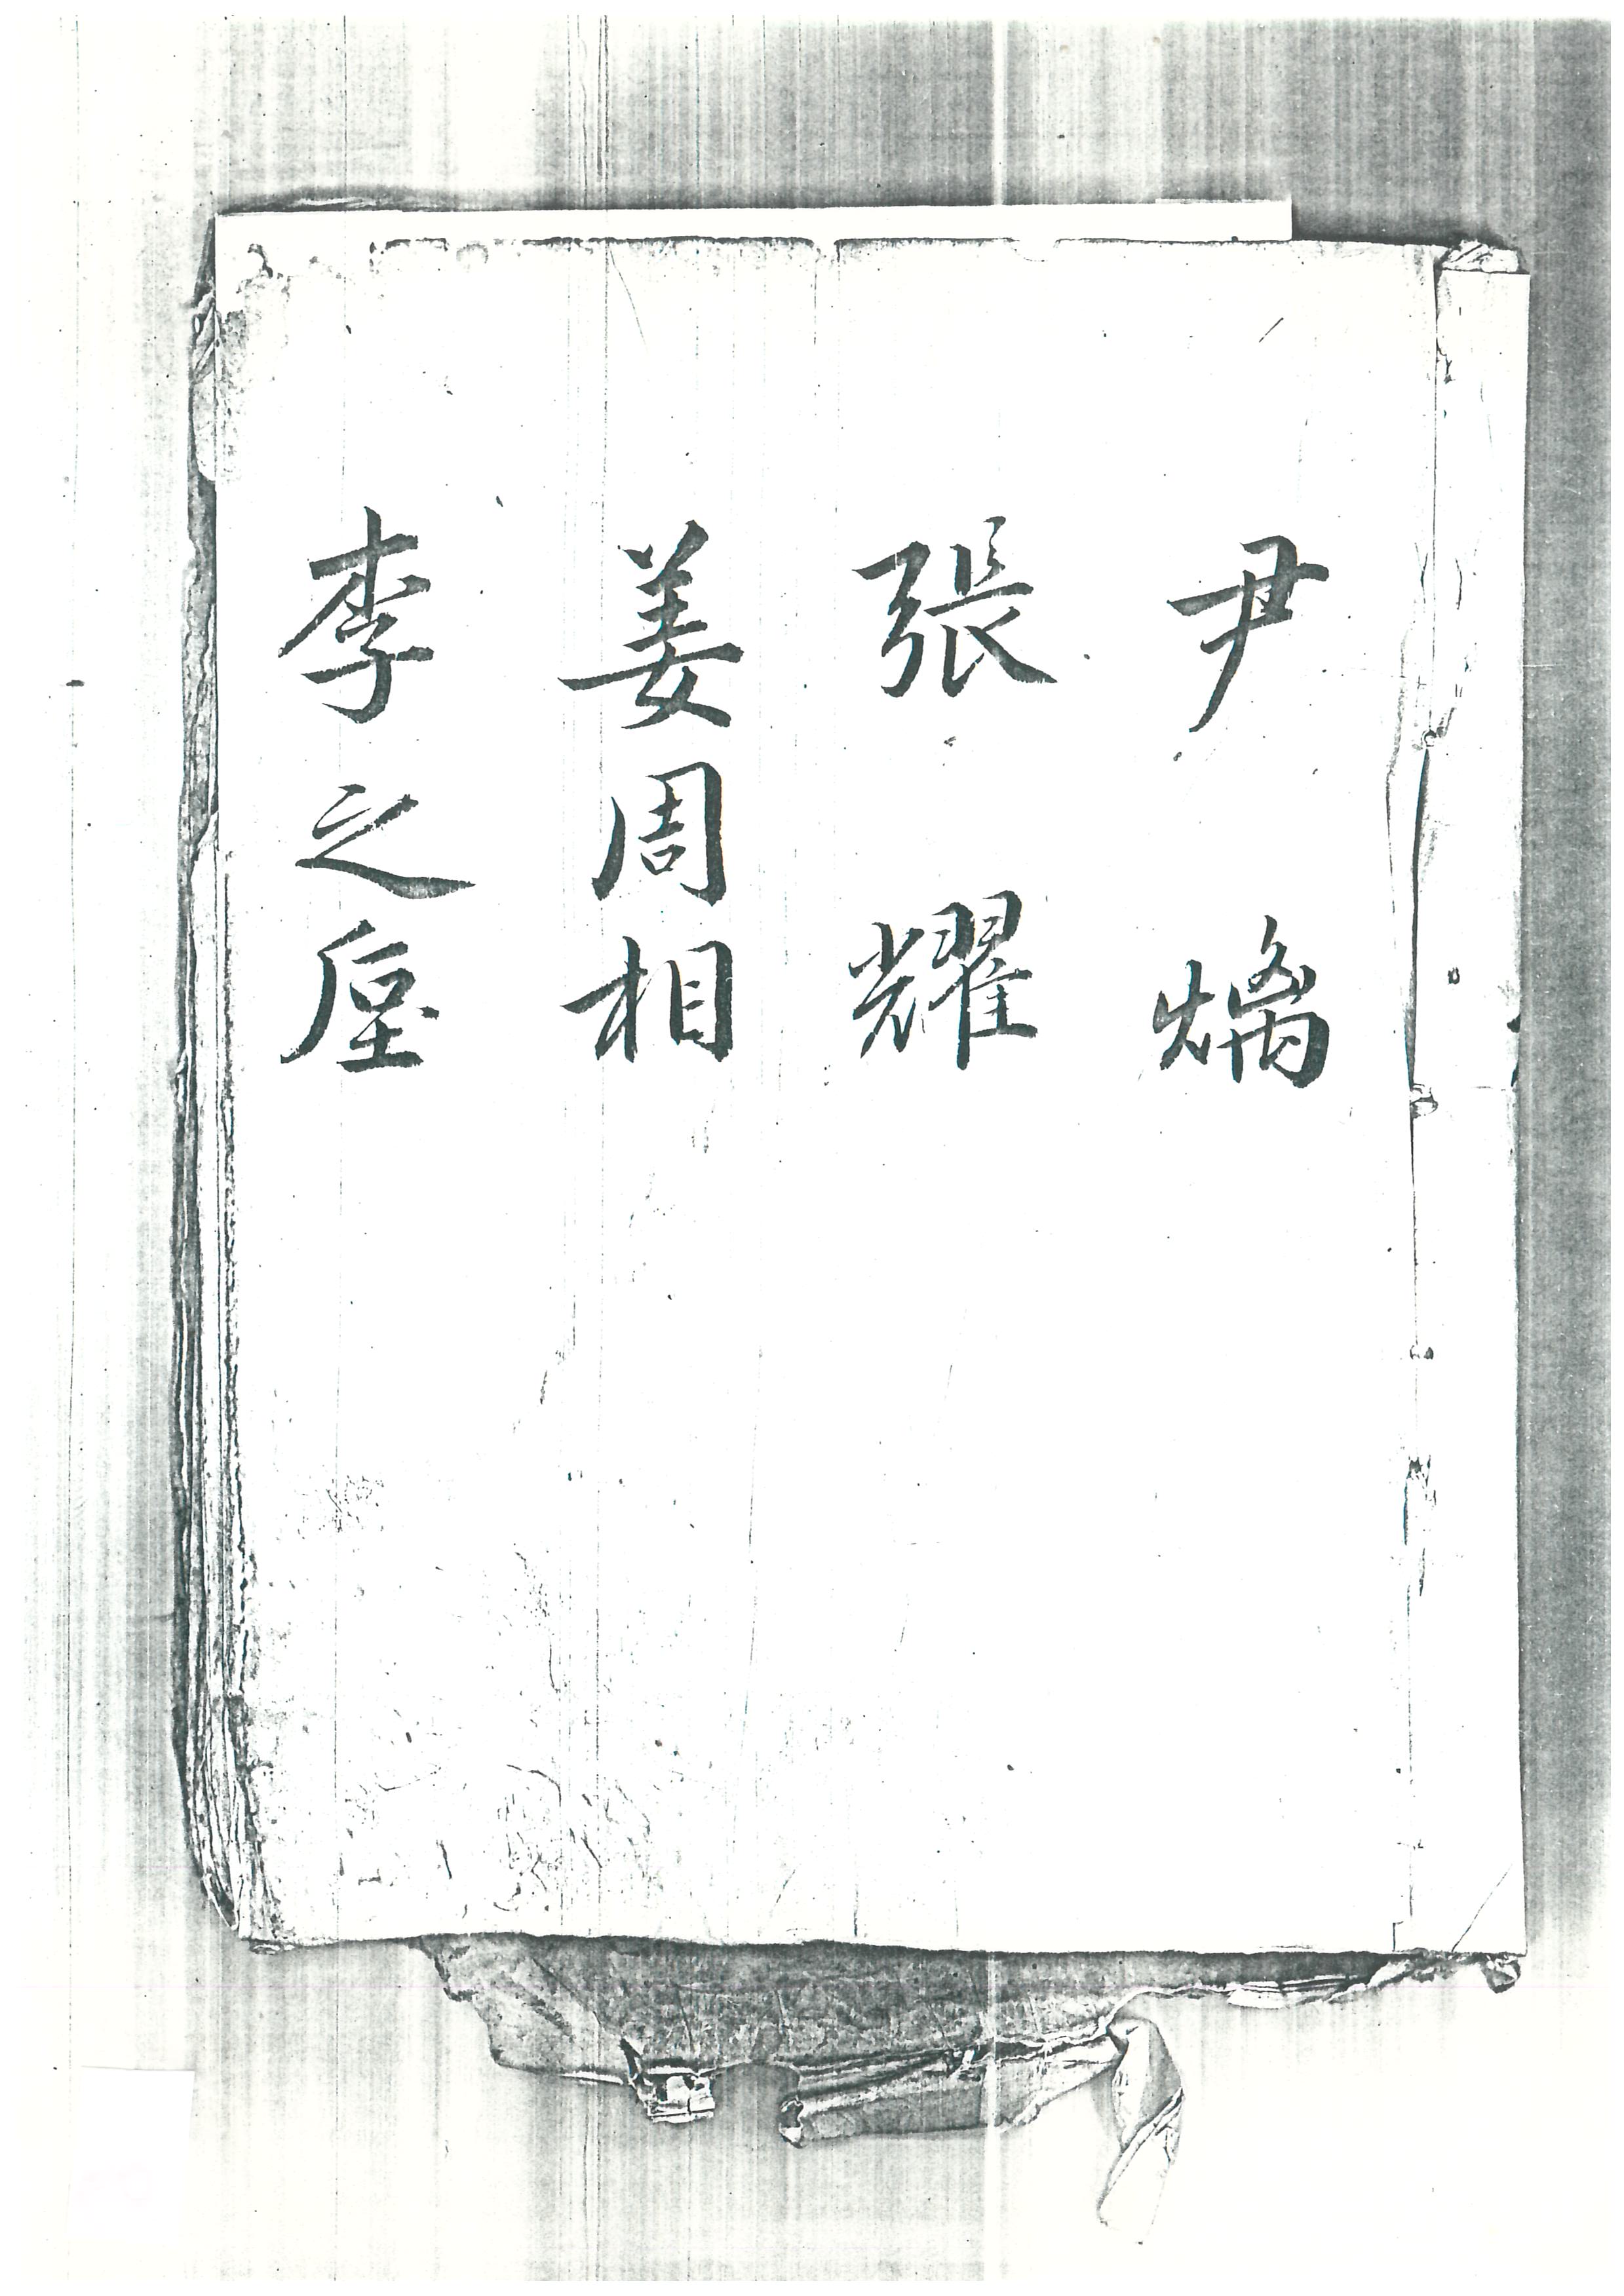 尹
張耀
姜周相
李之垕